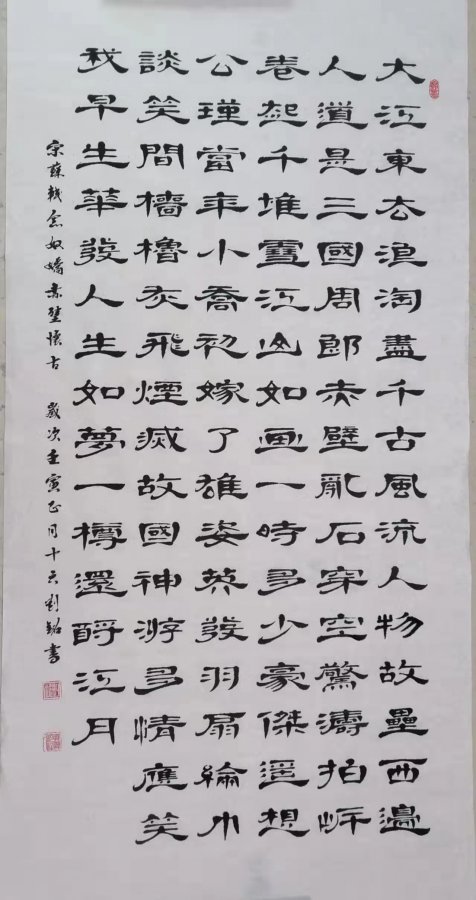 大江東去浪淘盡千古風流人物故壘西邊
人道是三國周郎赤壁亂石穿空驚濤拍岍
卷起千堆雪江山如画一時多少豪傑遥想
公瑾當年小喬初嫁了雄姿英發羽扇綸巾
談笑間檣櫓灰飛煙滅故國神游多情應笑
我早生華發人生如夢一樽還酹江月
宋蘇軾念奴嬌赤壁懷古 歲次壬寅正月十六劉銘書